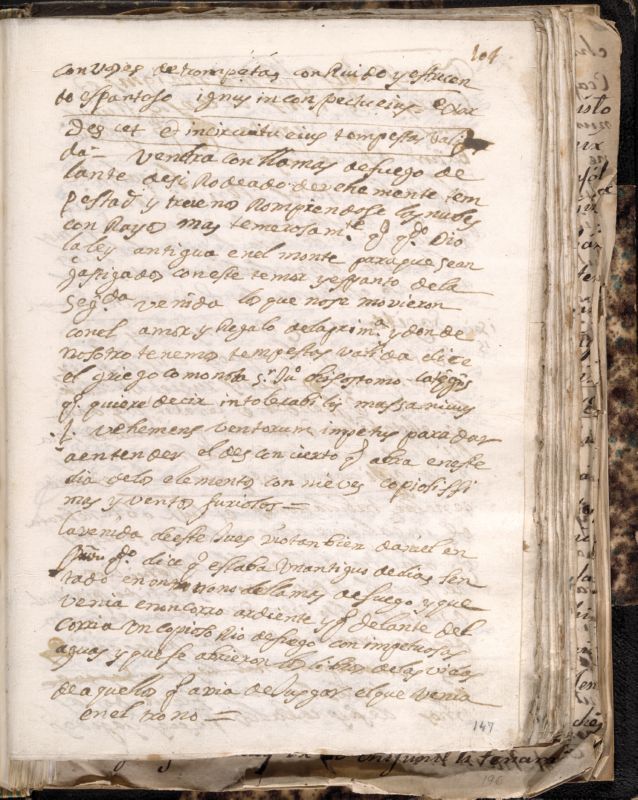 104
con voses de trompetas con Ruido y estruen
do espantoso ignis in conspectu eius exar
des cet et in circuitu eius tempestas vali
da = Vendra con llamas de fuego de
lante de si Rodeado de vehemente tem
pestad y truenos Rompiendose las nubes
con Rayos mas temerosamte q qdo Dio
la ley antigua en el monte para que sean
castigados con este temor y espanto de la
segda venida los que no se movieron
con el amor y Regalo de la primª y donde
nosotros tenemos tempestas valida dice
el griego como nota s. Juº
q quiere decir intolerabilis
vehemens ventorum impetus para dar
a entender el des concierto q abra en este
dia de los elementos con nieves copiosissi
mas y vientos furiosos =
la venida de este Jues vio tanbien daniel en
qdo dice q estaba Un antiguo de dias sen
tado en un trono de llamas de fuego y que
venia en un carro ardiente y q delante del
corria Un copioso Rio de fuego con impetuosas
aguas y que se abrieron los libros de las vidas
de aquellos q avia de Jusgar el que venia
en el trono =
147
196